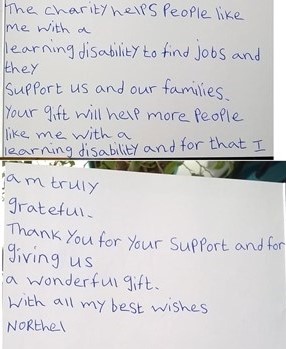 The charity helps People like
me with a
learning disability to find jobs and
they
Support us and our families.
Your gift will help more People
like me with a
learning disability and for that I
am truly
grateful.
Thank You for Your Support and for
giving us
a wonderful gift.
With all my best wishes
Northel